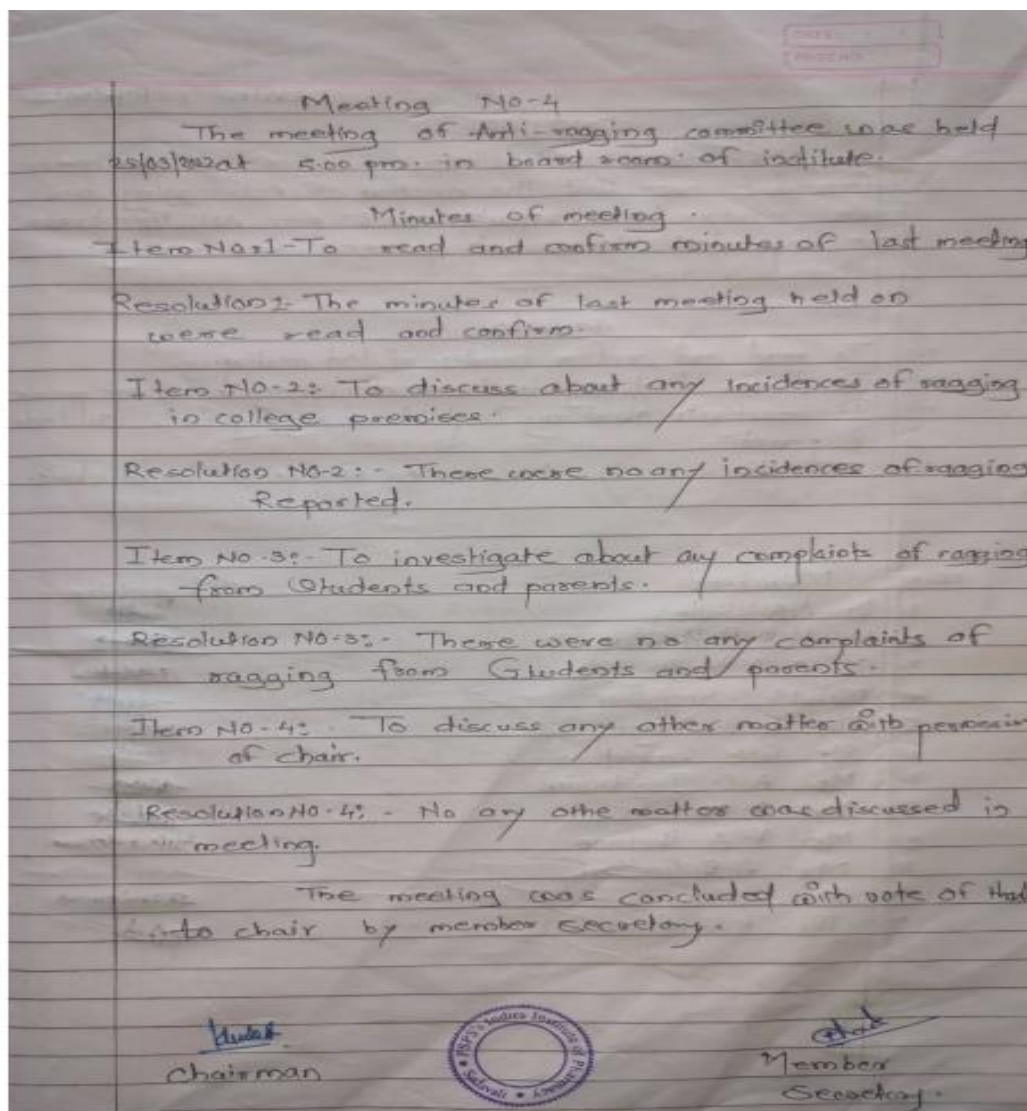 DATE
PAGE NO.
Meeting No-4
The meeting of Anti-ragging committee was held
at 5.00 pm. in board room. of institute.
Minutes of meeting.
Item No:1-To read and confirm minutes of last meeting
Resolution 1- The minutes of last meeting held on
were read and confirm.
Item No-2: To discuss about any incidences of ragging
in college premises.
Resolution No-2:- There were no any incidences of ragging
Reported.
Item No-3:- To investigate about any complaiots of ragging
from Students and parents.
Resolution No-3:- There were no any complaints of
ragging from Students and parents.
Item No-4:- To discuss any other matter with
of chair.
Resolution No-4:- No any othe matter was discussed in
meeting.
The meeting was concluded with vote of
to chair by member secretary.
Chairman
PSPS's Indira Institute of Pharmacy
Sadavali
Member
Secretary.